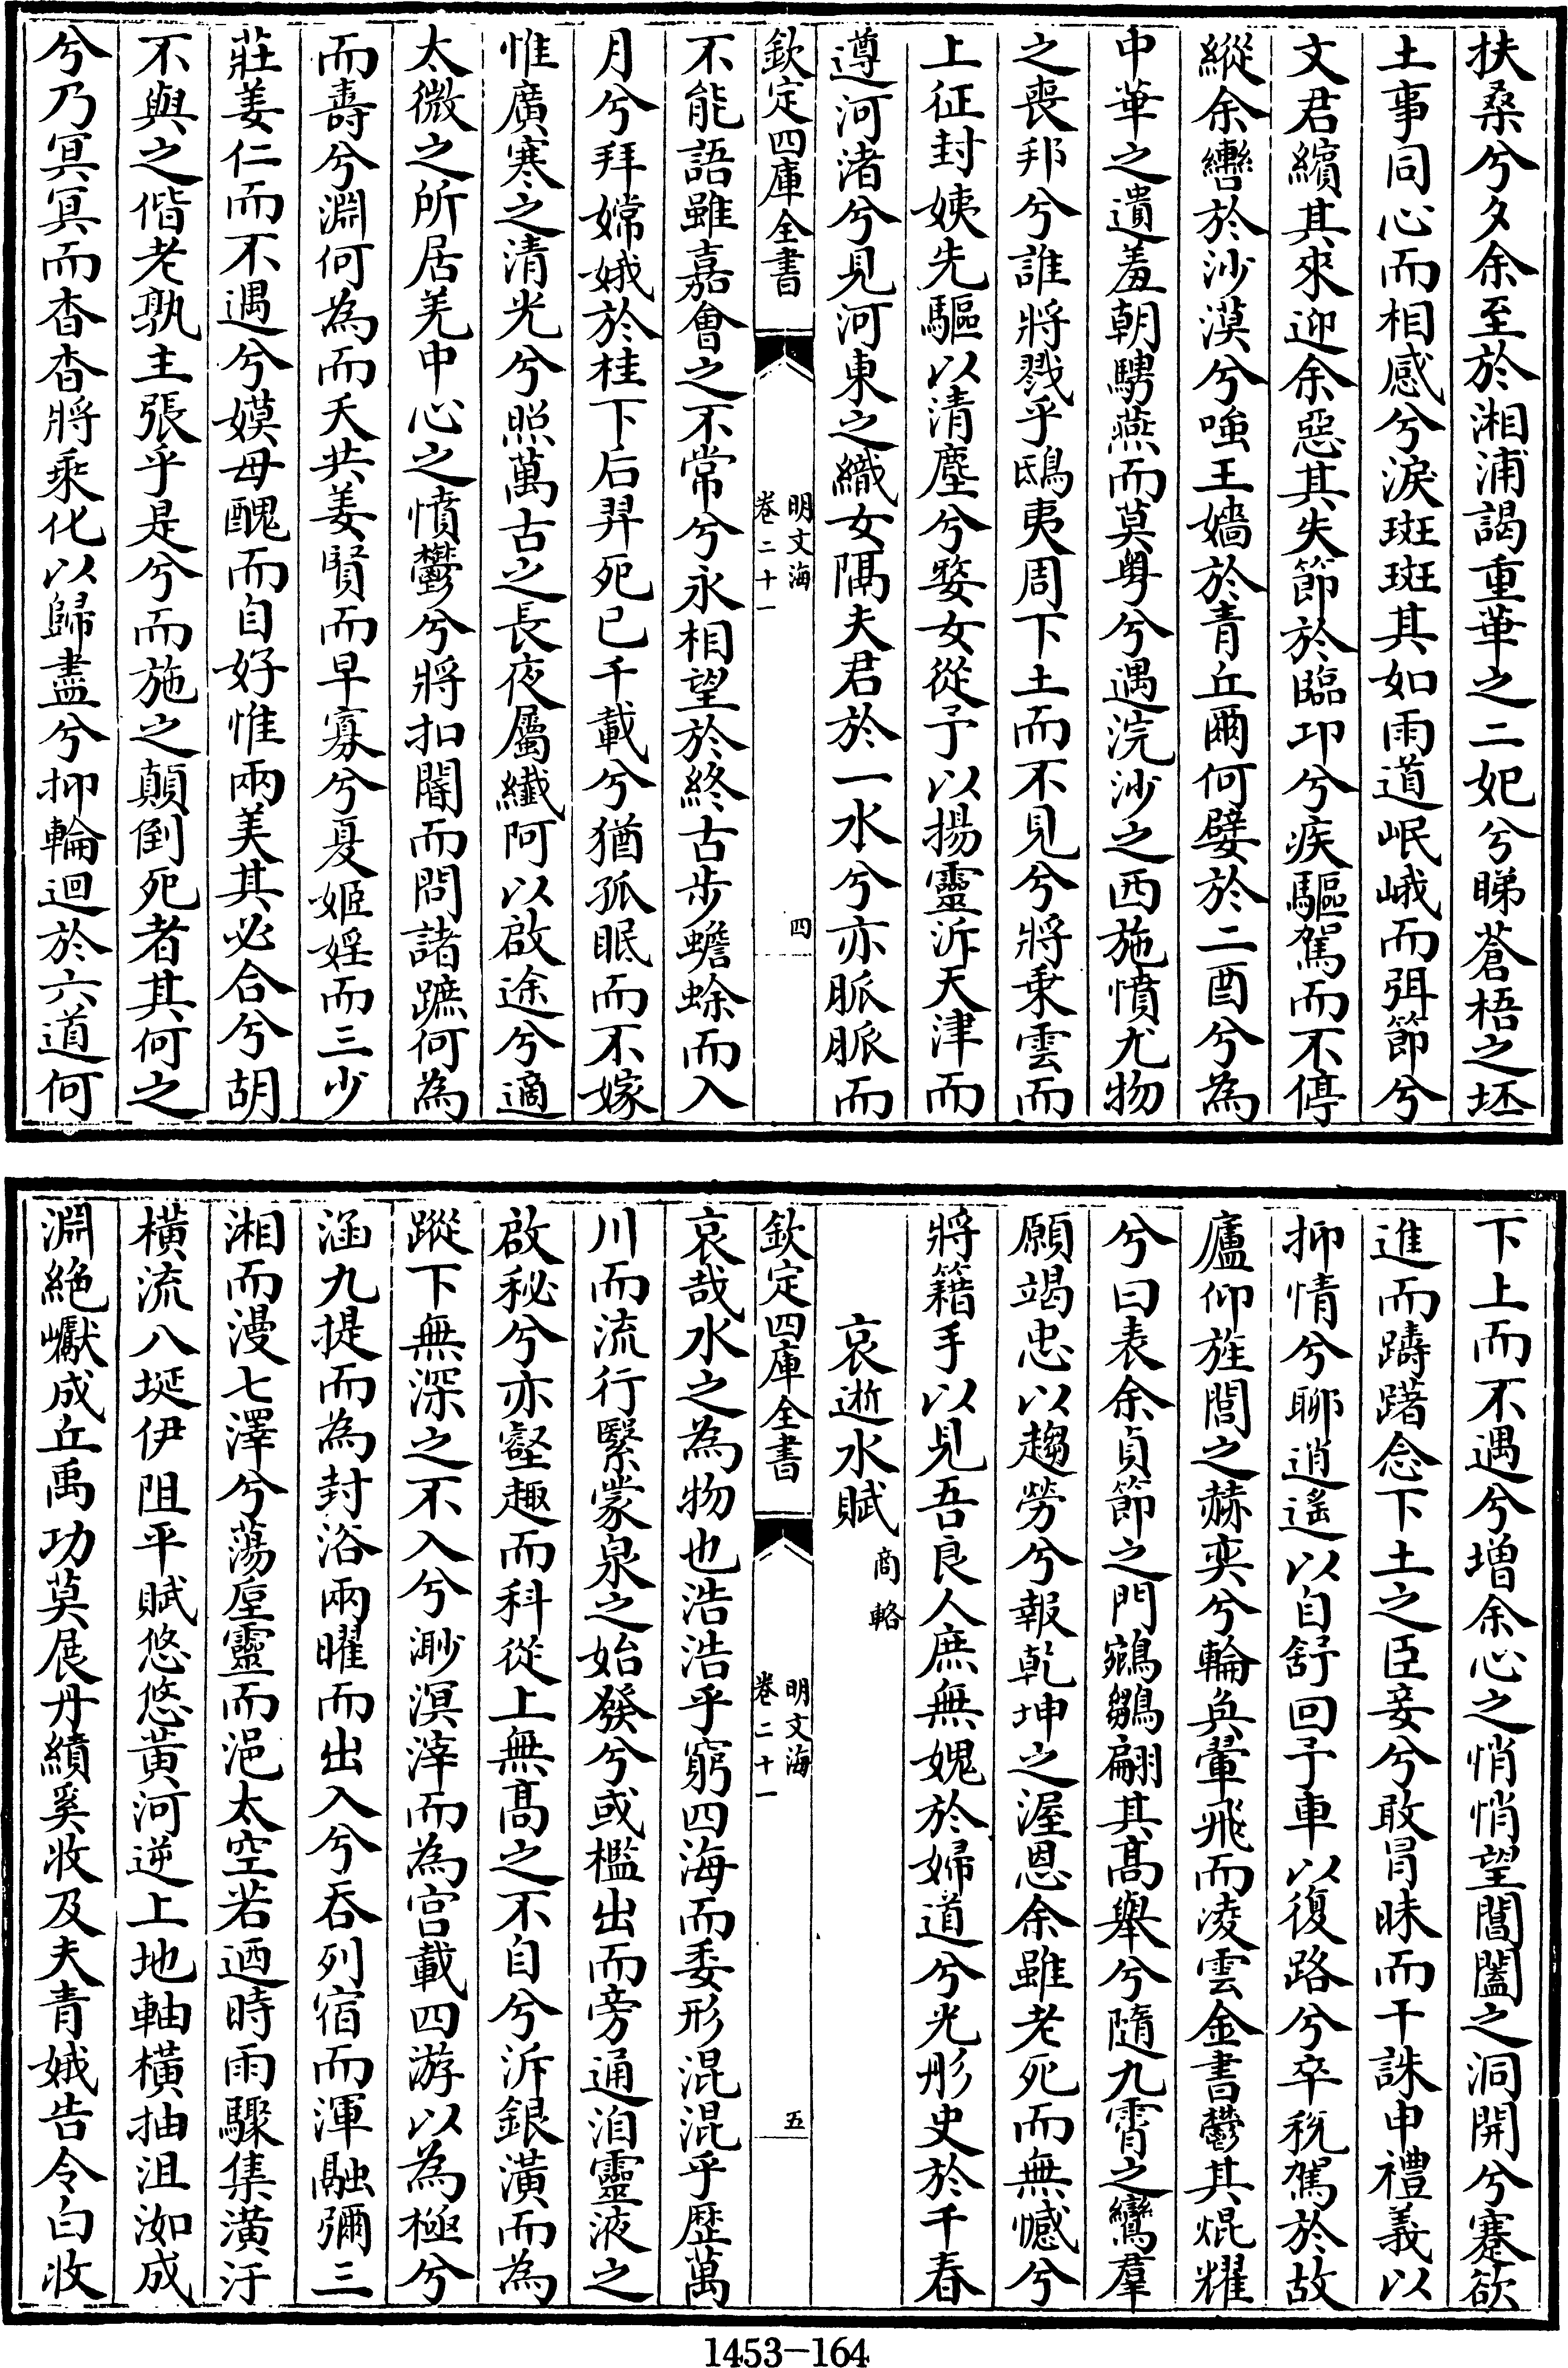 扶桑兮夕余至於湘浦謁重華之二妃兮睇蒼梧之坯
土事同心而相感兮淚斑斑其如雨道岷峨而弭節兮
文君繽其來迎余惡其失節於臨卭兮疾驅駕而不停
縱余轡於沙漠兮嗤王嬙於青丘爾何嬖於二酋兮為
中華之遺羞朝騁燕而莫粤兮遇浣沙之西施憤尤物
之喪邦兮誰將戮乎鴟夷周下土而不見兮將乘雲而
上征封姨先驅以清塵兮婺女從予以揚靈泝天津而
遵河渚兮見河東之織女隔夫君於一水兮亦脈脈而
欽定四庫全書
明文海
卷二十一
四
不能語雖嘉會之不常兮永相望於終古步蟾蜍而入
月兮拜嫦娥於桂下后羿死已千載兮猶孤眠而不嫁
惟廣寒之清光兮照萬古之長夜屬纖阿以啟途兮適
太微之所居羌中心之憤鬱兮將扣閽而問諸蹠何為
而壽兮淵何為而夭共姜賢而早寡兮夏姬婬而三少
莊姜仁而不遇兮嫫母醜而自好惟兩美其必合兮胡
不與之偕老孰主張乎是兮而施之顛倒死者其何之
兮乃冥冥而杳杳將乘化以歸盡兮抑輪迴於六道何
下上而不遇兮增余心之悄悄望閶闔之洞開兮蹇欲
進而躊躇念下土之臣妾兮敢冒昧而干誅申禮義以
抑情兮聊逍遙以自舒回予車以復路兮卒稅駕於故
廬仰旌閭之赫奕兮輪奐翬飛而凌雲金書鬱其焜耀
兮曰表余貞節之門鵷鶵翩其髙舉兮隨九霄之鸞羣
願竭忠以趨勞兮報乾坤之渥恩余雖老死而無憾兮
將籍手以見吾良人庶無媿於婦道兮光彤史於千春
哀逝水賦 商輅
欽定四庫全書
明文海
卷二十一
五
哀哉水之為物也浩浩乎窮四海而委形混混乎歷萬
川而流行繄蒙泉之始發兮或檻出而旁通洎靈液之
啟秘兮亦壑趣而科從上無髙之不自兮泝銀潢而為
蹤下無深之不入兮渺溟涬而為宫載四游以為極兮
涵九提而為封浴兩曜而出入兮吞列宿而渾融彌三
湘而漫七澤兮蕩堊靈而浥太空若迺時雨驟集潢汙
橫流八埏伊阻平賦悠悠黄河逆上地軸橫抽沮洳成
淵絶巘成丘禹功莫展丹績奚收及夫青娥告令白收
1453-164